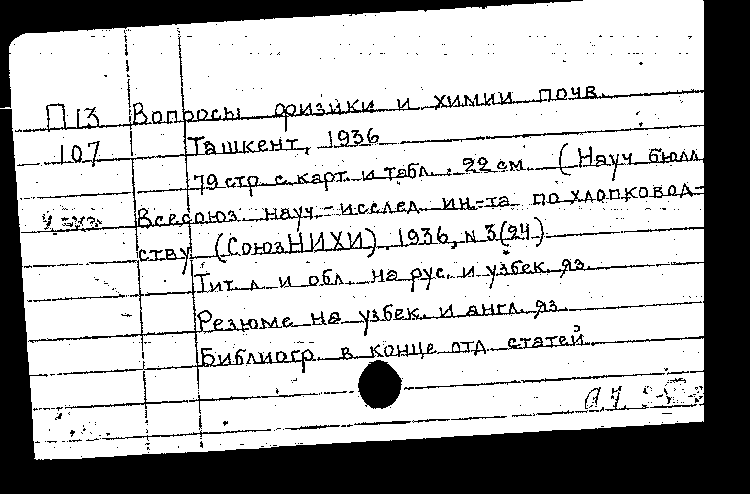 П13 Вопросы физики и химии почв.
107 Ташкент, 1936
79 стр. с карт. и табл. 22 см (Науч. бюлл.
Всесоюз. науч.-исслед. ин-та по хлопковод-
ству (СоюзНИХИ). 1936, N 3(24)
Тит. л. и обл. на рус. и узбек. яз.
Резюме на узбек. и англ. яз.
Библиогр. в конце отд. статей.